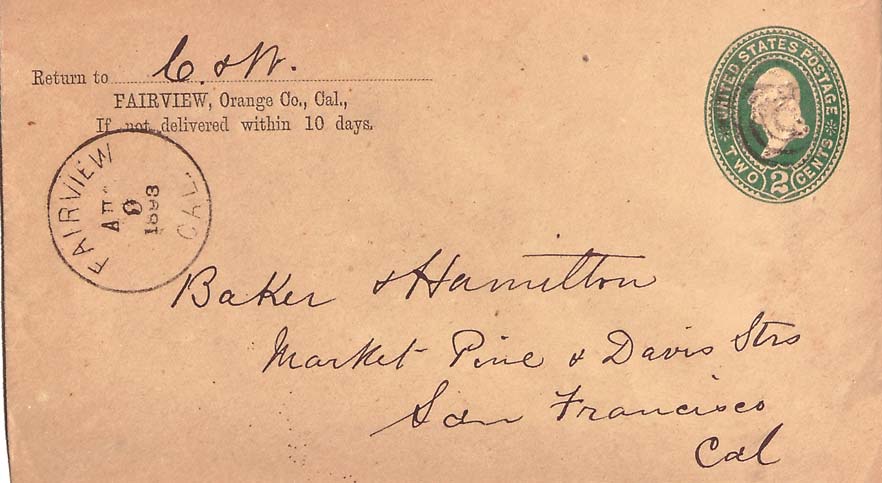 Return to C. & W.
FAIRVIEW, Orange Co., Cal.,
If not delivered within 10 days.
UNITED STATES POSTAGE
TWO 2 CENTS
FAIRVIEW CAL.
9
1893
Baker & Hamilton
Market Pine & Davis Strs
San Francisco
Cal